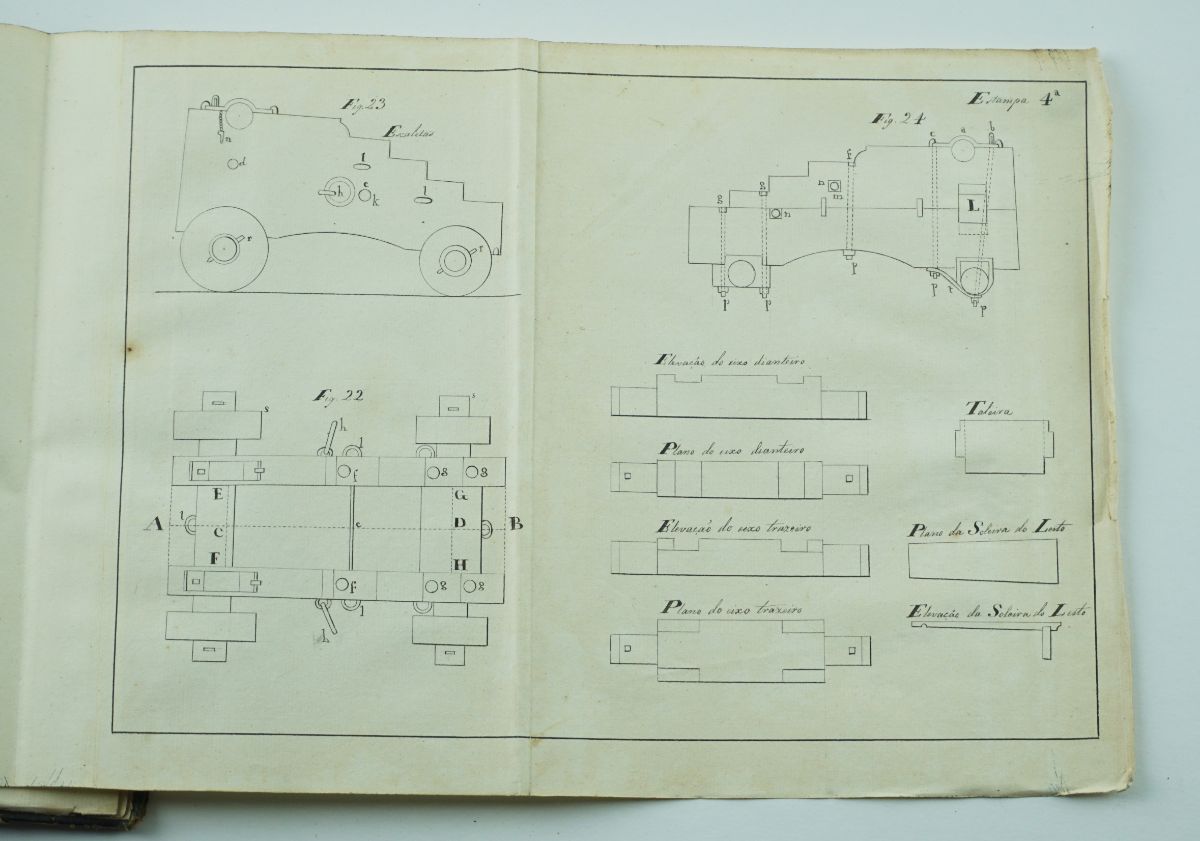 Estampa 4ª
Fig. 23
Escaletas
n
d
h
l
e
k
l
r
r
Fig. 24
c
a
b
f
g
g
n
m
n
L
p
p
p
p
t
p
Fig. 22
s
s
h
l
f
g
g
E
G
A
l
C
c
D
B
F
H
f
g
g
l
h
Elevação do eixo dianteiro
Plano do eixo dianteiro
Elevação do eixo trazeiro
Plano do eixo trazeiro
Taleira
Plano da Soleira do Leito
Elevação da Soleira do Leito